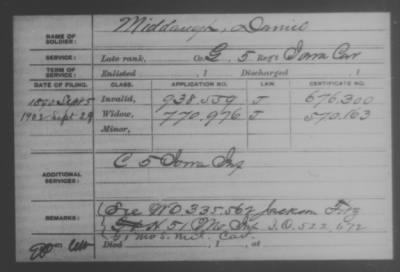 NAME OF SOLDIER: Middaugh, Daniel
SERVICE: Late rank, Co. G, 5 Reg't Iowa Cav
TERM OF SERVICE: Enlisted , 1 Discharged , 1
DATE OF FILING. CLASS. APPLICATION NO. LAW. CERTIFICATE NO.
1890 Sept 5 Invalid, 938.559 J 676.300
1902 Sept 29 Widow, 770.976 J 570.163
Minor,
ADDITIONAL SERVICES: C 5 Iowa Inf
REMARKS: See WO 335.562 Jackson
51 Mo Inf I.O. 522,672
mos. mil. Cav.
Died , 1 , at